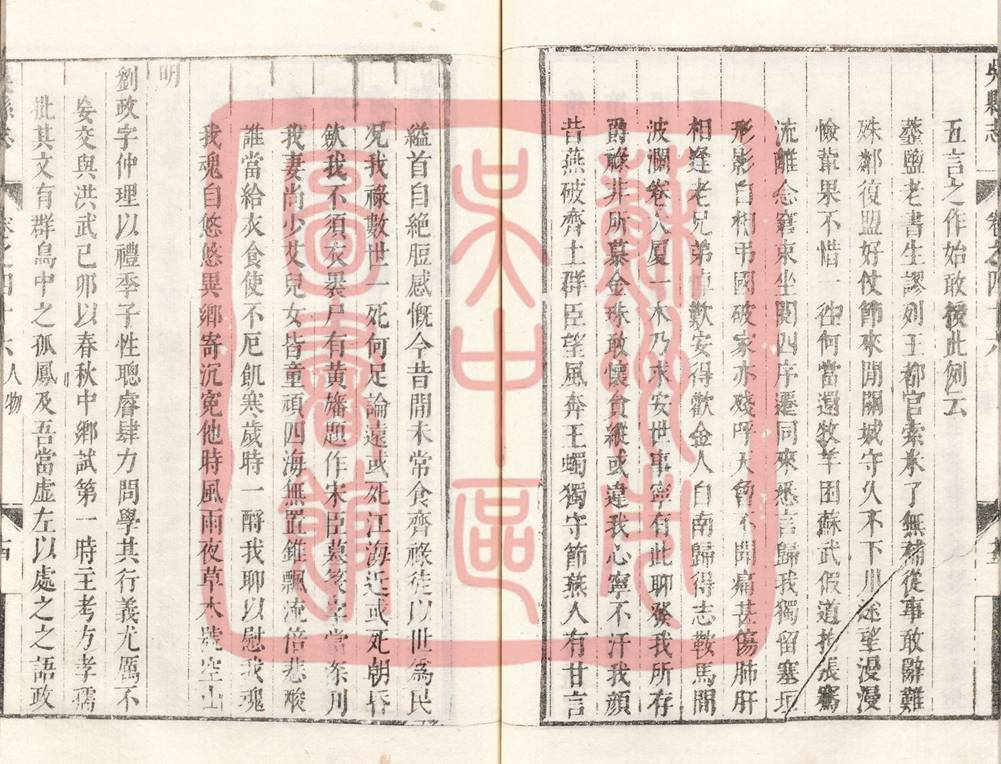 吳縣志
卷之四十六
五言之作始敢援此例云
虀鹽老書生謬列王都官索米了無補從事敢辭難
殊鄰復盟好仗節來閒關城守久不下川途望漫漫
儉輩果不惜一往何當還牧羊困蘇武假道拘張騫
流離念窘束坐閱四序遷同來悉言歸我獨留塞垣
形影自相弔國破家亦殘呼天會不聞痛甚傷肺肝
相逢老兄弟悼歎安得歡金人自南歸得志鞍馬間
波瀾卷大厦一木乃求安世事寧有此聊發我所存
爵祿非所慕金珠敢懷貪縱或違我心寧不汗我顏
昔燕破齊土群臣望風奔王蠋獨守節燕人有甘言
縊首自絕脰感慨今昔聞未常食齊祿徒以世為民
况我祿數世一死何足論遠或死江海近或死朝昏
斂我不須衣裹尸有黃旛題作宋臣墓篆字當深刋
我妻尚少艾兒女皆童頑四海無置錐飄流倍悲酸
誰當給衣食使不厄飢寒歲時一酹我聊以慰我魂
我魂自悠悠異鄉寄沉寃他時風雨夜草木號空山
明
劉政字仲理以禮季子性聰睿肆力問學其行義尤厲不
妄交與洪武已卯以春秋中鄉試第一時王考方孝孺
批其文有群鳥中之孤鳳及吾當虛左以處之之語政
吳縣志
卷之四十六
人物